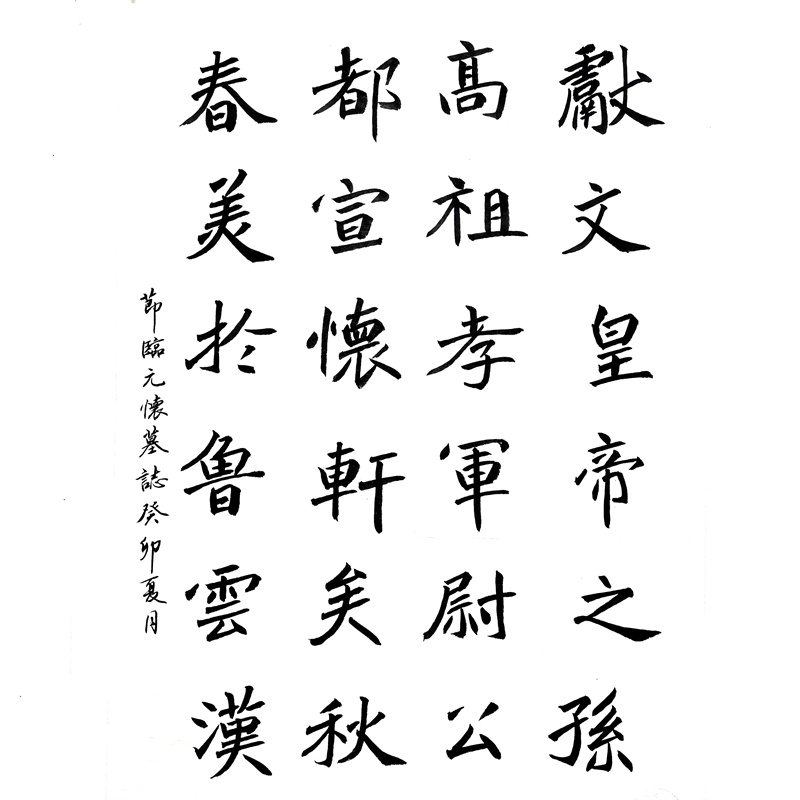 獻文皇帝之孫
高祖孝軍尉公
都宣懷軒矣秋
春美於魯雲漢
節臨元懷墓誌癸卯夏月